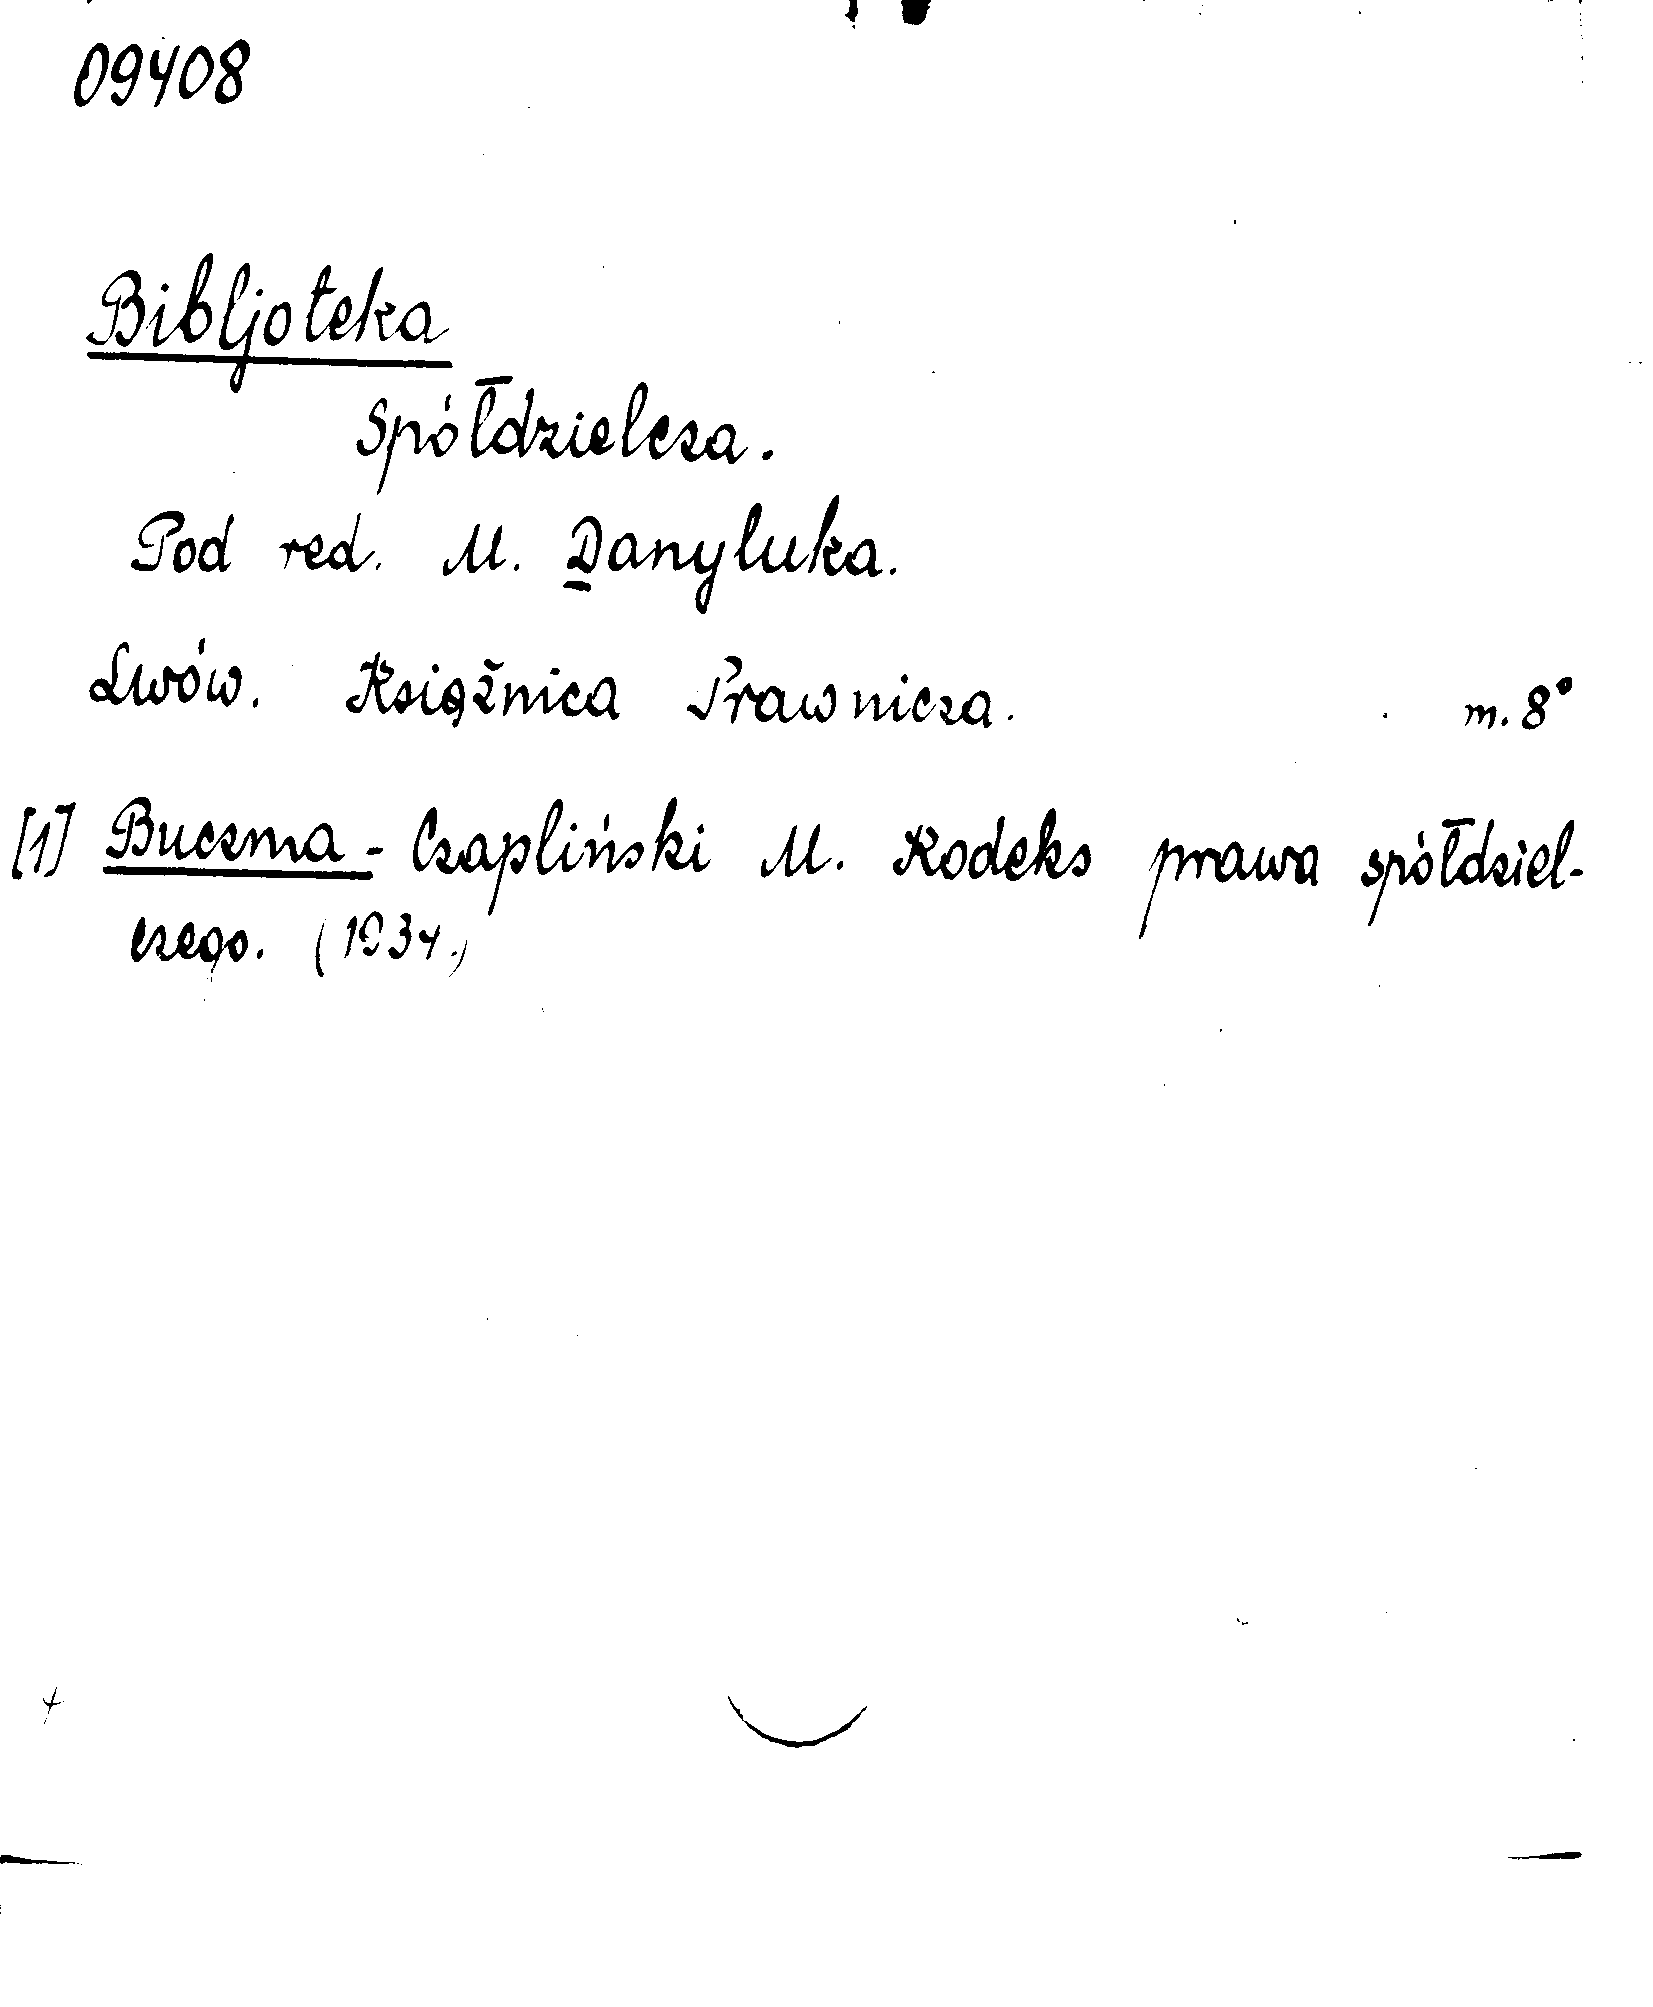 09408
Bibljoteka
Spółdzielcza.
Pod red. M. Danyluka.
Lwów. Księżnica Prawnicza. m. 8°
[1] Buczma - Czapliński M. Kodeks prawa spółdziel-
czego. (1934.)